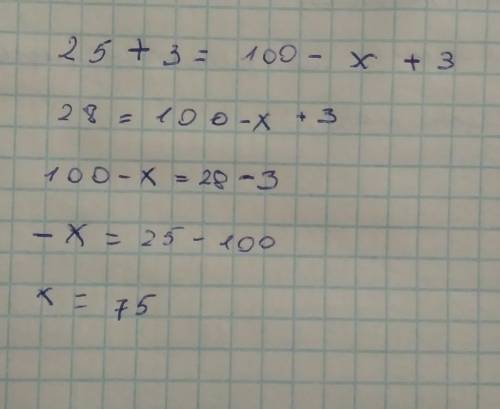 25 + 3 = 100 - x + 3
28 = 100 - x + 3
100 - x = 28 - 3
- x = 25 - 100
x = 75